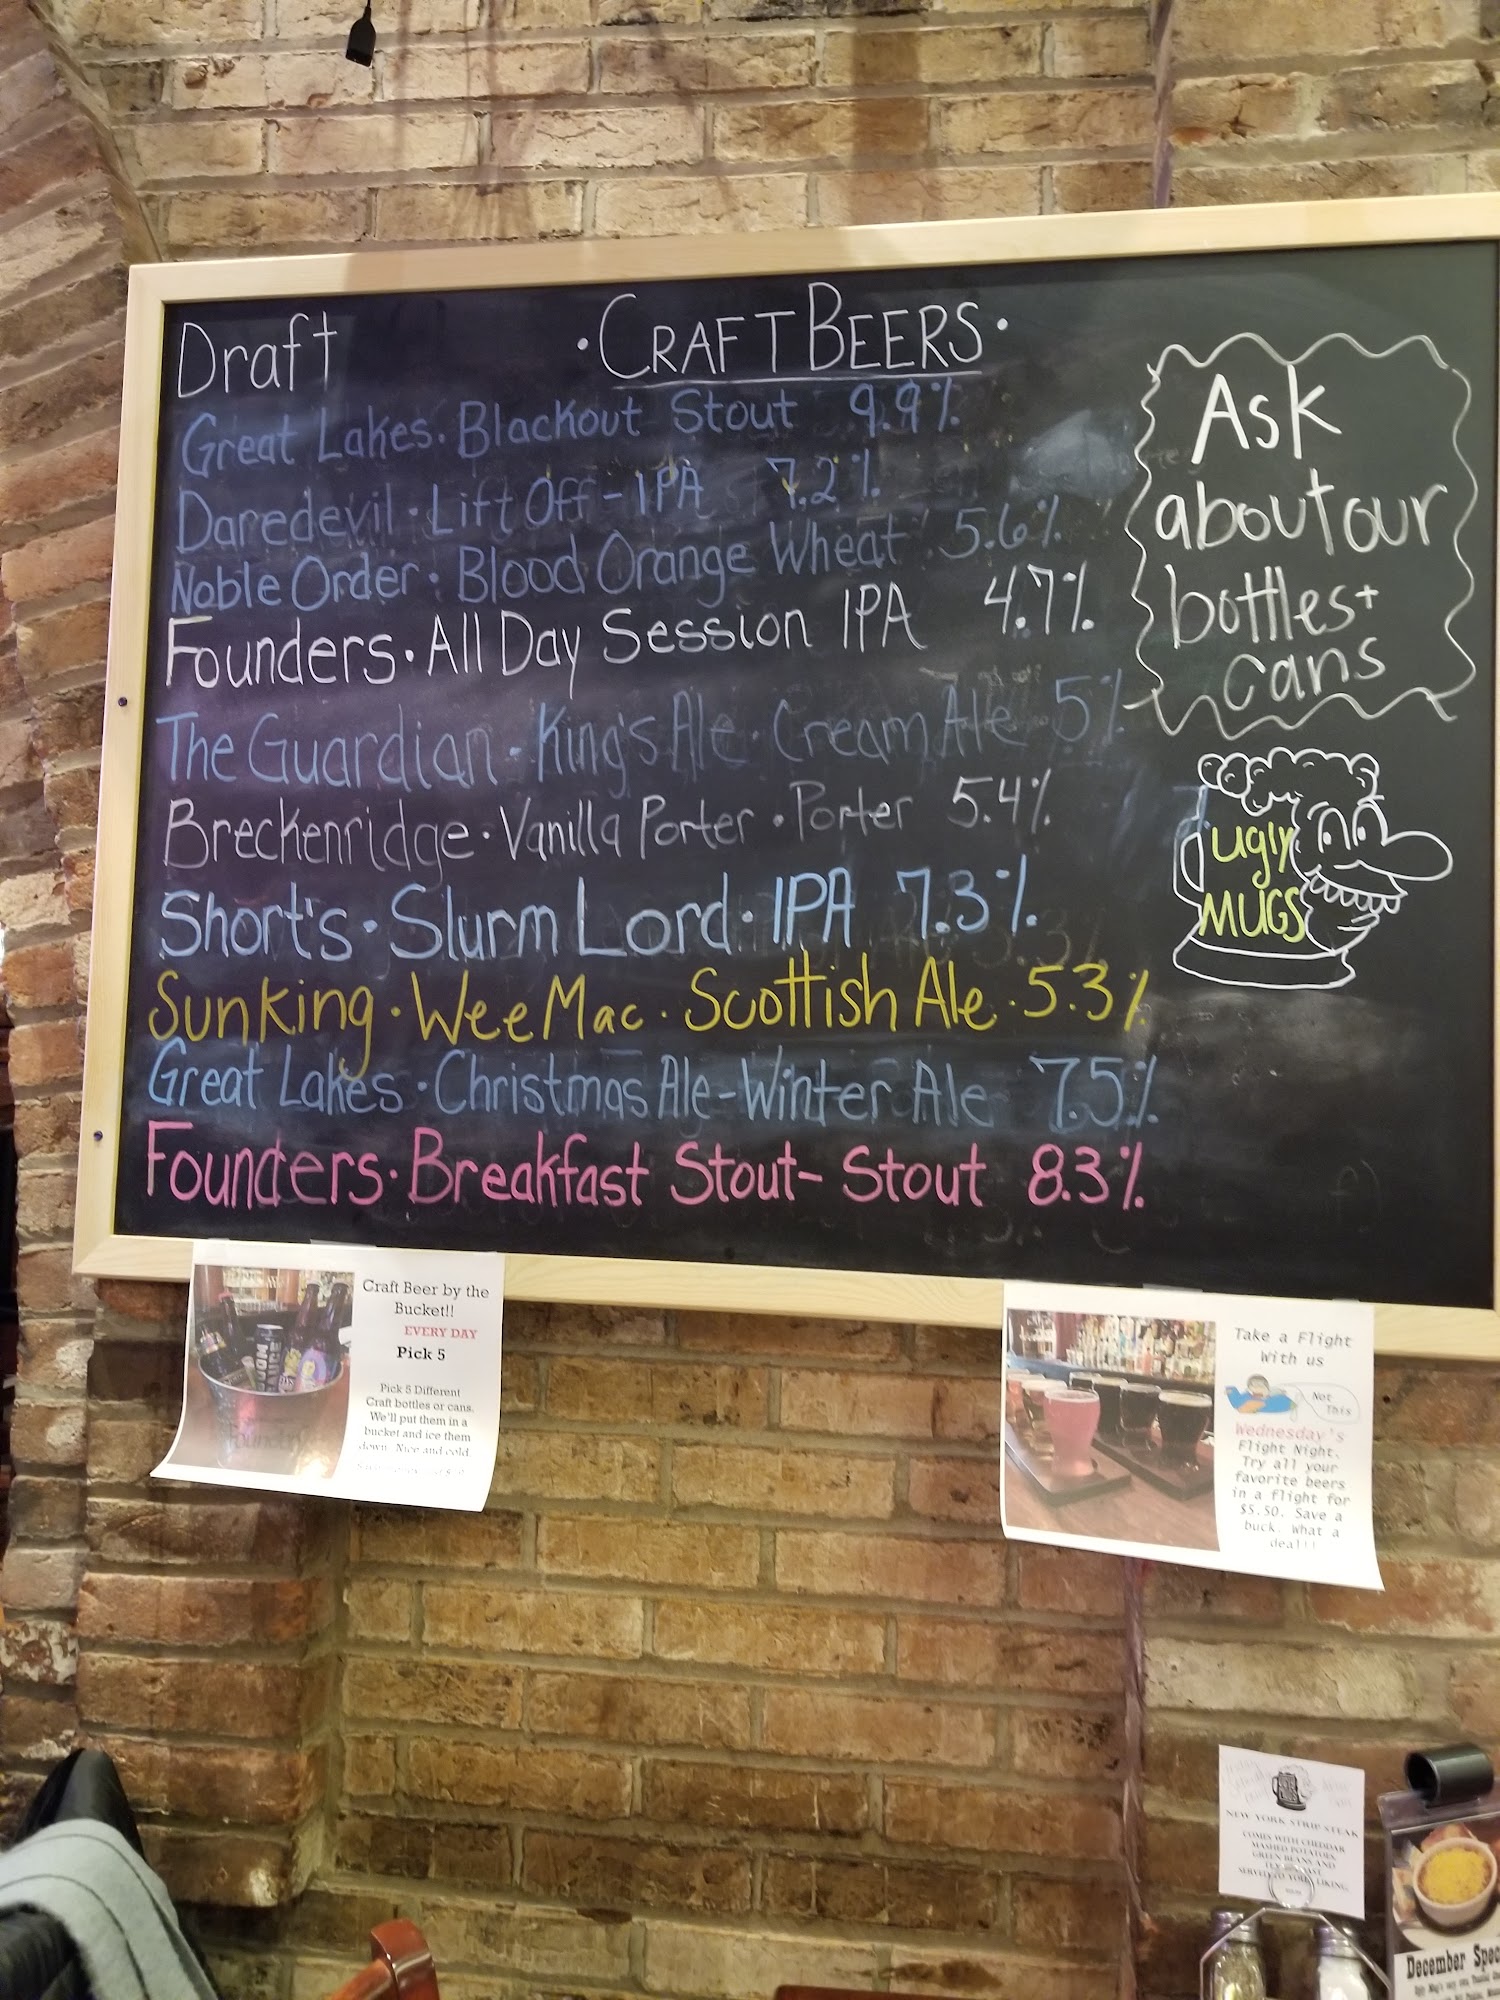 Draft
·CRAFT BEERS·
Great Lakes. Blackout Stout 9.9%
Daredevil · Lift Off - IPA 7.2%
Noble Order · Blood Orange Wheat · 5.6%
Founders · All Day Session IPA 4.7%
The Guardian - King's Ale · Cream Ale 5%
Breckenridge · Vanilla Porter · Porter 5.4%
Short's · Slurm Lord · IPA 7.3%
Sun King · Wee Mac · Scottish Ale · 5.3%
Great Lakes · Christmas Ale - Winter Ale 7.5%
Founders · Breakfast Stout - Stout 8.3%
Ask
about our
bottles +
cans
ugly
MUGS
Craft Beer by the
Bucket!!
EVERY DAY
Pick 5
Pick 5 Different
Craft bottles or cans.
We'll put them in a
bucket and ice them
down. Nice and cold.
Take a Flight
With us
Not
This
Wednesday's
Flight Night.
Try all your
favorite beers
in a flight for
$5.50. Save a
buck. What a
deal!!
NEW YORK STRIP STEAK
COMES WITH CHEDDAR
MASHED POTATOES,
GREEN BEANS AND
SERVED TO YOUR LIKING
December Spec